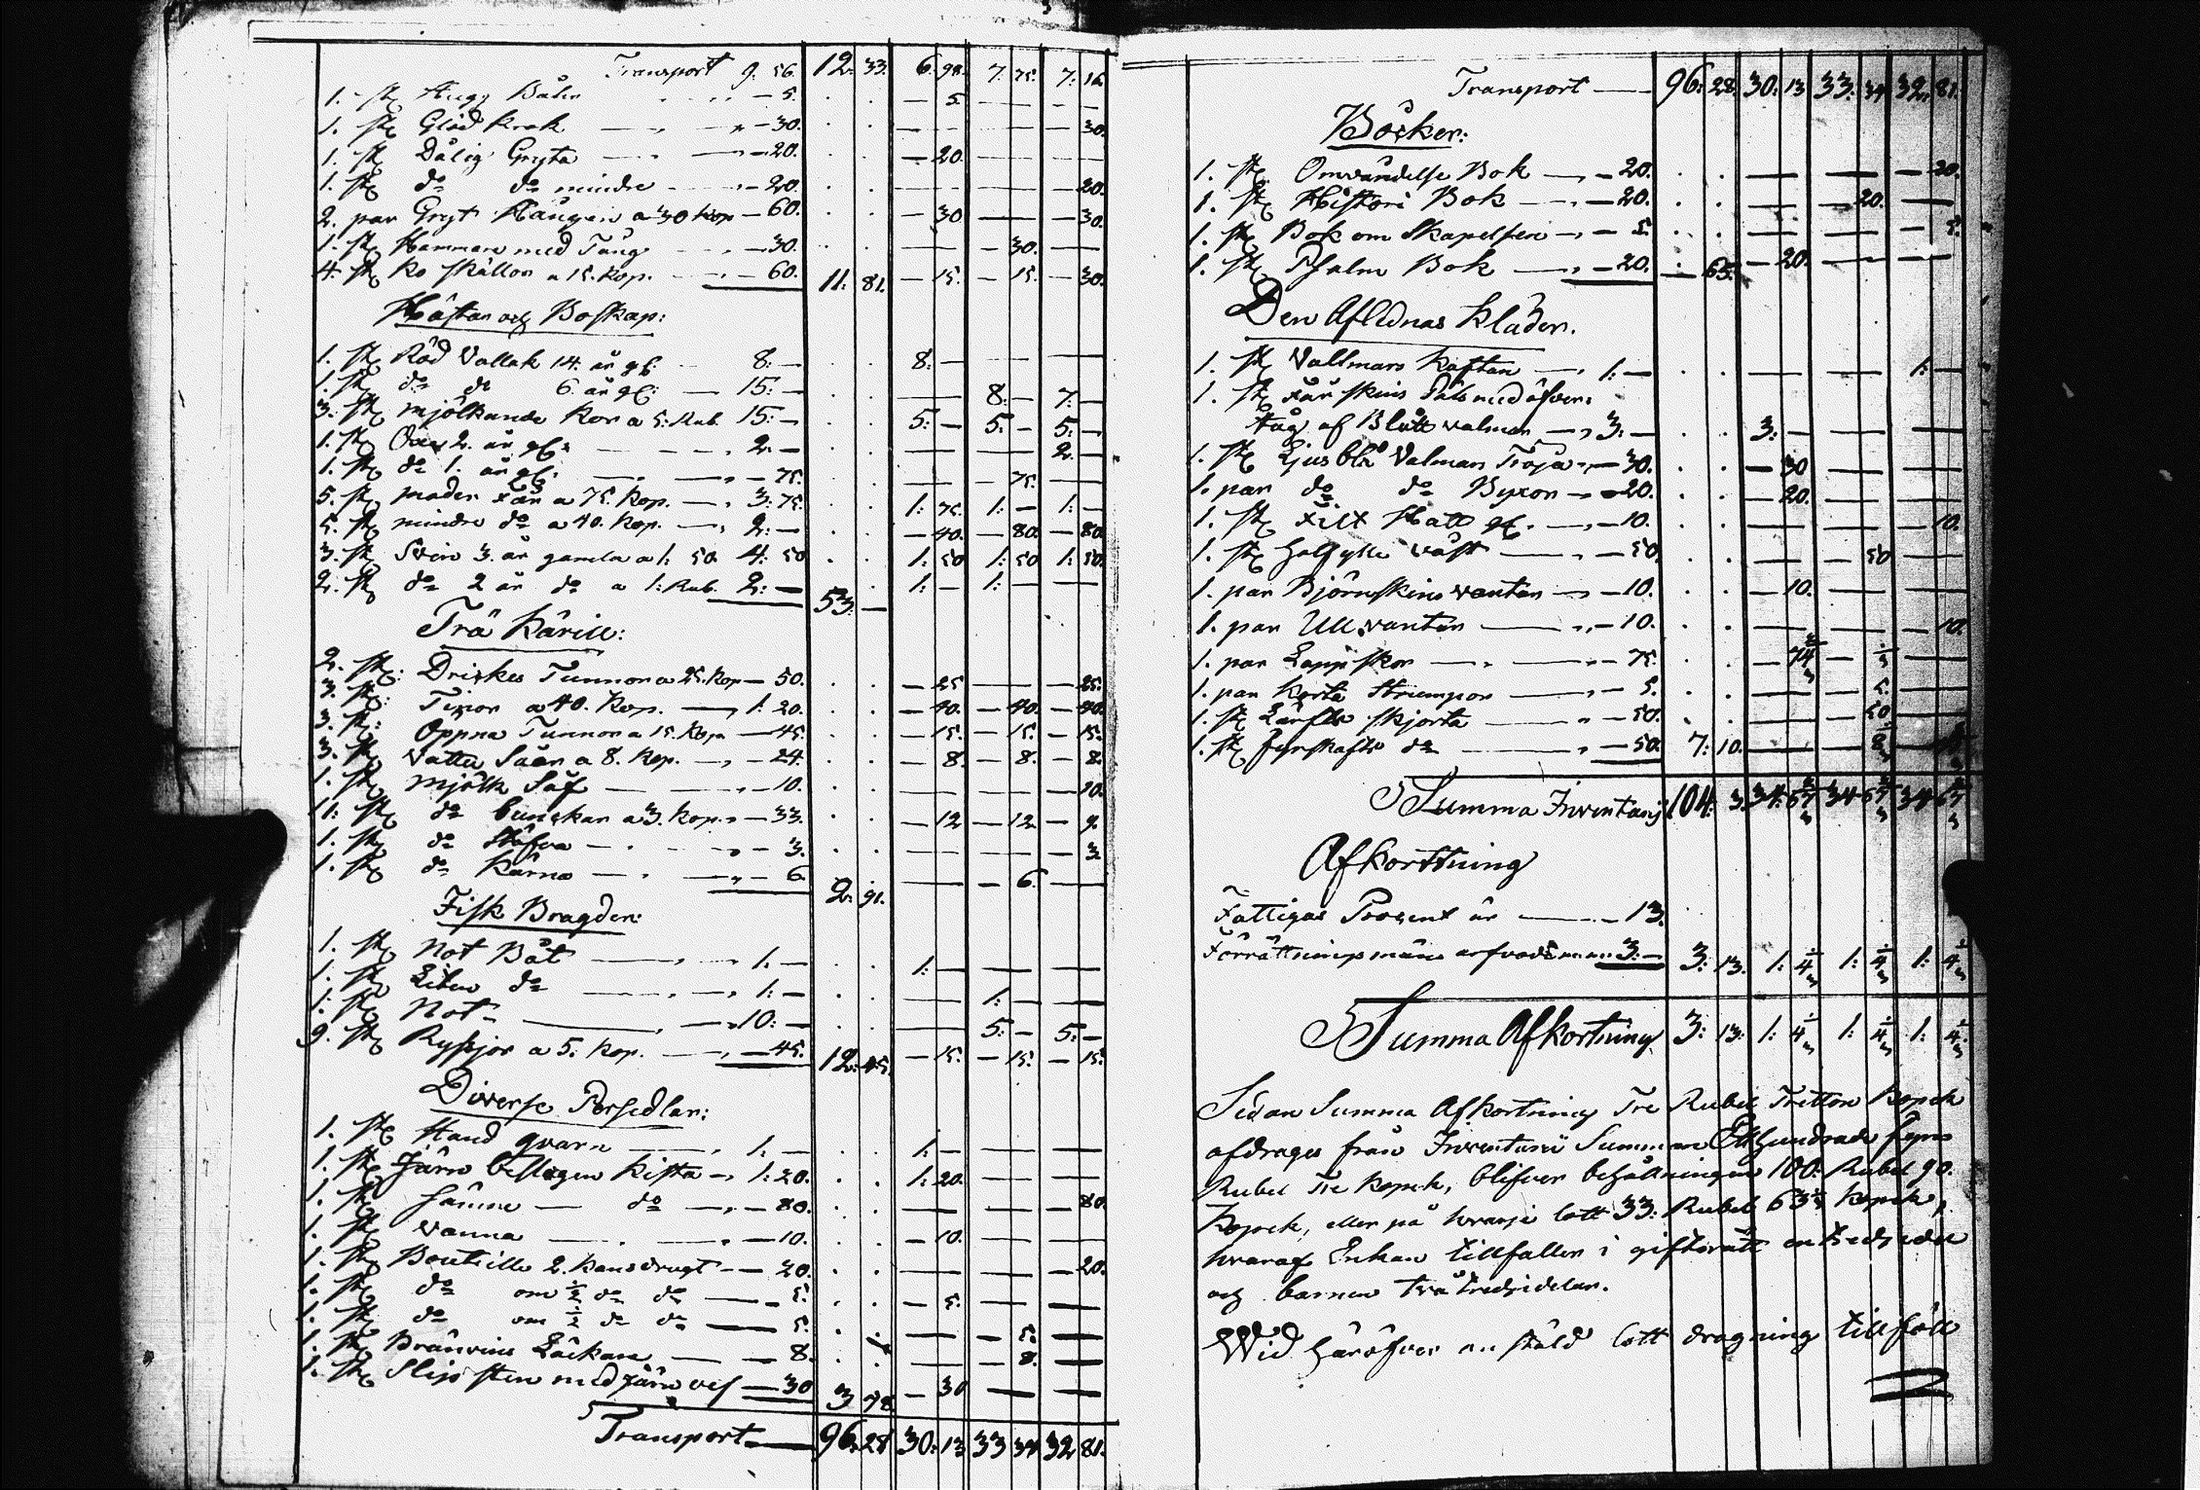 Transport 9. 56. 12. 33. 6. 98. 7. 75. 7. 16.
1. stk Hugg Bålin — 5. . . — 5. — — — —
1. stk Glöd krok — — 30. . . — — — — — 30.
1. stk Dålig Gryta — — 20. . . — 20. — — — —
1. stk do do mindre — 20. . . — — — — — 20.
2. par Gryt Hängen a 30 kop — 60. . . — 30 — — — 30.
1. stk Hammare med Tång — 30. . . — — — 30. — —
4. stk ko skällor a 15. kop. — 60. 11: 81. — 15. — 15. — 30.
Hästar och Boskap:
1. stk Röd Vallak 14. år gl: 8: — . . 8: — — — — —
1. stk do do 6. år gl: — 15: — . . — — 8: — 7: —
3. stk mjölkande kor a 5: Rub. 15: — . . 5: — 5: — 5: —
1. stk Oxe 2. år gl: — 2: — . . — — — — 2. —
1. stk do 1. år gl: — — 75. . . — — — 75. — —
5. stk moder får a 75. kop. — 3: 75. . . 1: 75. 1: — 1: —
5. stk mindre do a 40. kop. — 2: — . . — 40. — 80. — 80.
3. stk Svin 3. år gamla a 1: 50. 4: 50 . . 1: 50 1: 50 1: 50.
2. stk do 2 år do a 1: Rub. 2: — 53: — 1: — 1: — — —
Trä Kärill:
2. stk: Drickes Tunnor a 25. kop — 50. . . — 25 — — — 25.
3. stk: Tinor a 40. kop. — 1: 20. . . — 40. — 40. — 40.
3. stk: Öppna Tunnor a 15. kop — 45. . . — 15. — 15. — 15.
3. stk Vattu Såar a 8. kop. — 24. . . — 8. — 8. — 8.
1. stk mjölk Såf — — 10. . . — — — — — 10.
11: stk do bunckar a 3. kop. — 33. . . — 12 — 12 — 9.
1. stk do Stäfva — — 3. . . — — — — — 3.
1. stk do kärna — — 6. 2. 91. — — — 6. — —
Fisk Bragder:
1. stk Not Båt — 1. — . . 1: — — — — —
1. stk Liten do — 1: — . . — — 1: — — —
1. stk Not — 10: — . . — — 5: — 5: —
9. stk Ryssjor a 5. kop. — 45. 12: 45. — 15. — 15. — 15.
Diverse Persedlar:
1. stk Hand qvarn — 1. — . . 1: — — — — —
1. stk Järn beslagen kista — 1: 20. . . 1: 20. — — — —
1. stk sämre — do — 80. . . — — — — — 80.
1. stk vanna — — 10. . . — 10. — — — —
1. stk Bouteille 2. kans drugt — 20. . . — — — — — 20.
1. stk do om ½ do do — 5. . . — 5. — — — —
1. stk do om ½ do do — 5. . . — — — 5. — —
1. stk Bränvins Läckare — 8. . . — — — 8. — —
1. stk Slipsten med järn vef — 30 3 78. — 30 — — — —
Transport — 96. 28 30: 13 33 34 32 81.
Transport — 96: 28. 30: 13 33: 34 32: 81.
Böcker:
1. stk Omvändelse Bok — 20. . . — — — — — 20.
1. stk Histori Bok — 20. . . — — — 20. — —
1. stk Bok om Skapelsen — 5. . . — — — — — 5.
1. stk Psalm Bok — 20. — 65. — 20. — — — —
Den Aflednas kläder.
1. stk Vallmars kaftan — 1: — . . — — — — 1: —
1. stk Fårskins Päls med öfver-
tåg af Blått valmar — 3: — . . 3: — — — — —
1. stk Ljusblå Valmars Tröja — 30. . . — 30 — — — —
1. par do do Byxor — 20. . . — 20. — — — —
1. stk Filt Hatt gl. — 10. . . — — — — — 10.
1. stk Halfylle väst — 50. . . — — — 50 — —
1. par Björnskins vantar — 10. . . — 10. — — — —
1. par Ull vantar — 10. . . — — — — — 10.
1. par Lappskor — 75. . . — 74⅔ — ⅓ — —
1. par korta Strumpor — 5. . . — — — 5. — —
1. stk Lärfts skjorta — 50. . . — — — 50. — —
1. stk fyrskafts do — 50. 7: 10. — —
Summa Inventarij 104: 3. 34. 57⅔ 34 57⅔ 34 57⅔
Afkorttning
Fattigas Procent är — 13.
Förrättningsmäns arfvode 3: — 3: 13. 1: 4⅓ 1: 4⅓ 1: 4⅓
Summa Afkortning 3: 13: 1: 4⅓ 1: 4⅓ 1: 4⅓
Sedan Summa Afkortning Tre Rubel Tretton kopek
afdrages från Inventarii Summan Etthundrade fyra
Rubel Tre kopek, blifver behållningen 100. Rubel 90.
kopek, eller på hvarje lott 33: Rubel 63⅓ kopek,
hvaraf Enkan tillfaller i giftorätt en tredjedel
och barnen två tredjedelar.
Wid häröfver anstäld lott dragning tillföll